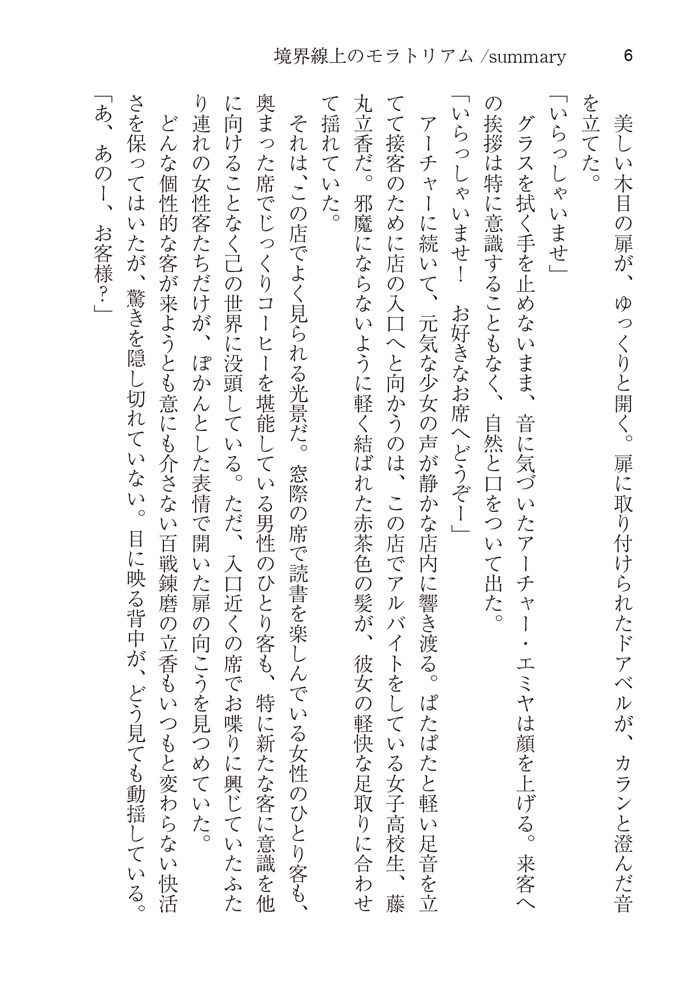 境界線上のモラトリアム /summary
6
　美しい木目の扉が、ゆっくりと開く。扉に取り付けられたドアベルが、カランと澄んだ音
を立てた。
「いらっしゃいませ」
　グラスを拭く手を止めないまま、音に気づいたアーチャー・エミヤは顔を上げる。来客へ
の挨拶は特に意識することもなく、自然と口をついて出た。
「いらっしゃいませ！　お好きなお席へどうぞー」
　アーチャーに続いて、元気な少女の声が静かな店内に響き渡る。ぱたぱたと軽い足音を立
てて接客のために店の入口へと向かうのは、この店でアルバイトをしている女子高校生、藤
丸立香だ。邪魔にならないように軽く結ばれた赤茶色の髪が、彼女の軽快な足取りに合わせ
て揺れていた。
　それは、この店でよく見られる光景だ。窓際の席で読書を楽しんでいる女性のひとり客も、
奥まった席でじっくりコーヒーを堪能している男性のひとり客も、特に新たな客に意識を他
に向けることなく己の世界に没頭している。ただ、入口近くの席でお喋りに興じていたふた
り連れの女性客たちだけが、ぽかんとした表情で開いた扉の向こうを見つめていた。
　どんな個性的な客が来ようとも意にも介さない百戦錬磨の立香もいつもと変わらない快活
さを保ってはいたが、驚きを隠し切れていない。目に映る背中が、どう見ても動揺している。
「あ、あのー、お客様？」